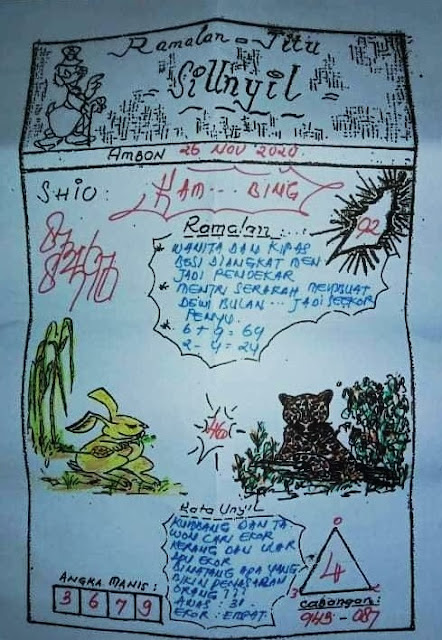 Ramalan - Jitu
Si Unyil
AMBON 26 NOV 2020
SHIO: KAM... BING
92
Ramalan:...
* WANITA DAN KIPAS
BESI DIANGKAT MEN
JADI PENDEKAR
* MENTRI SERAKAH MEMBUAT
DEWI BULAN... JADI SEEKOR
PENYU.
* 6 + 9 = 69
2 - 4 = 24
46
Kata Unyil
KUMBANG DAN TA
WON CARI EKOR
KERANG DAN ULAR
ADU EKOR
BINATANG APA YANG
BIKIN PENASARAN
ORANG ???
AWAS : 3
EKOR : EMPAT.
ANGKA MANIS:
3 6 7 9
0
4
3
Cabangan:
943 - 087